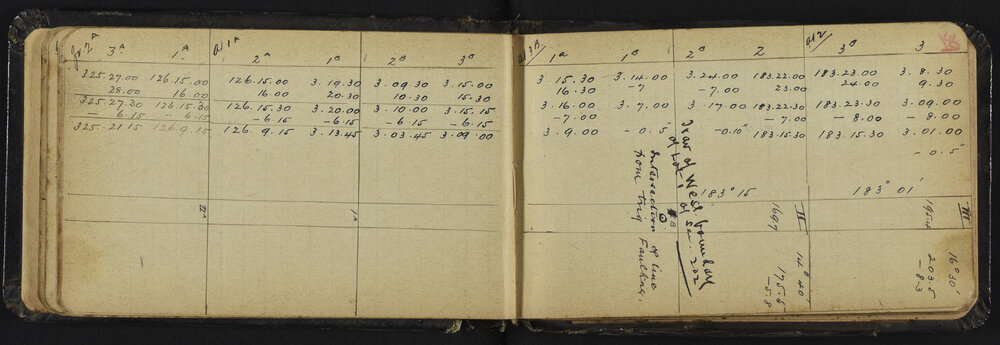 3ᴬ 1ᴬ at 1ᴬ 2ᴬ 1ᴮ 2ᴮ 3ᴮ
325.27.00 126.15.00 126.15.00 3.19.30 3.09.30 3.15.00
28.00 16.00 16.00 20.30 10.30 15.30
325.27.30 126.15.30 126.15.30 3.20.00 3.10.00 3.15.15
- 6.15 - 6.15 - 6.15 - 6.15 - 6.15 - 6.15
325.21.15 126.9.15 126.9.15 3.13.45 3.03.45 3.09.00
IIᴬ Iᴬ
at 3ᴮ 1ᴬ 1ᴮ 2ᴮ 2 at 2 3ᴮ 3
3.15.30 3.14.00 3.24.00 183.22.00 183.23.00 3.8.30
16.30 -7 -7.00 23.00 24.00 9.30
3.16.00 3.7.00 3.17.00 183.22.30 183.23.30 3.09.00
-7.00 -7.00 -8.00 -8.00
3.9.00 -0.5" -0.10" 183.15.30 183.15.30 3.01.00
-0.5"
183°15 183°01'
Trav of West boundary
of Lot 1 of Sec. 202
Intersection of line
from Trig Faulkner.
II
1697
14°40'
175.5
-5.8
III
1954
16°30'
203.5
-8.3